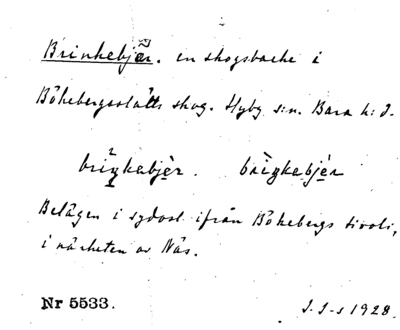 Brinkebjär. en skogsbacke i
Bökebergsslätts skog. Hyby s:n. Bara h:d.
briŋkebjèr. brìŋkebjèr
Belägen i sydost ifrån Bökebergs tivoli,
i närheten av Näs.
Nr 5533. J. I-s 1928.